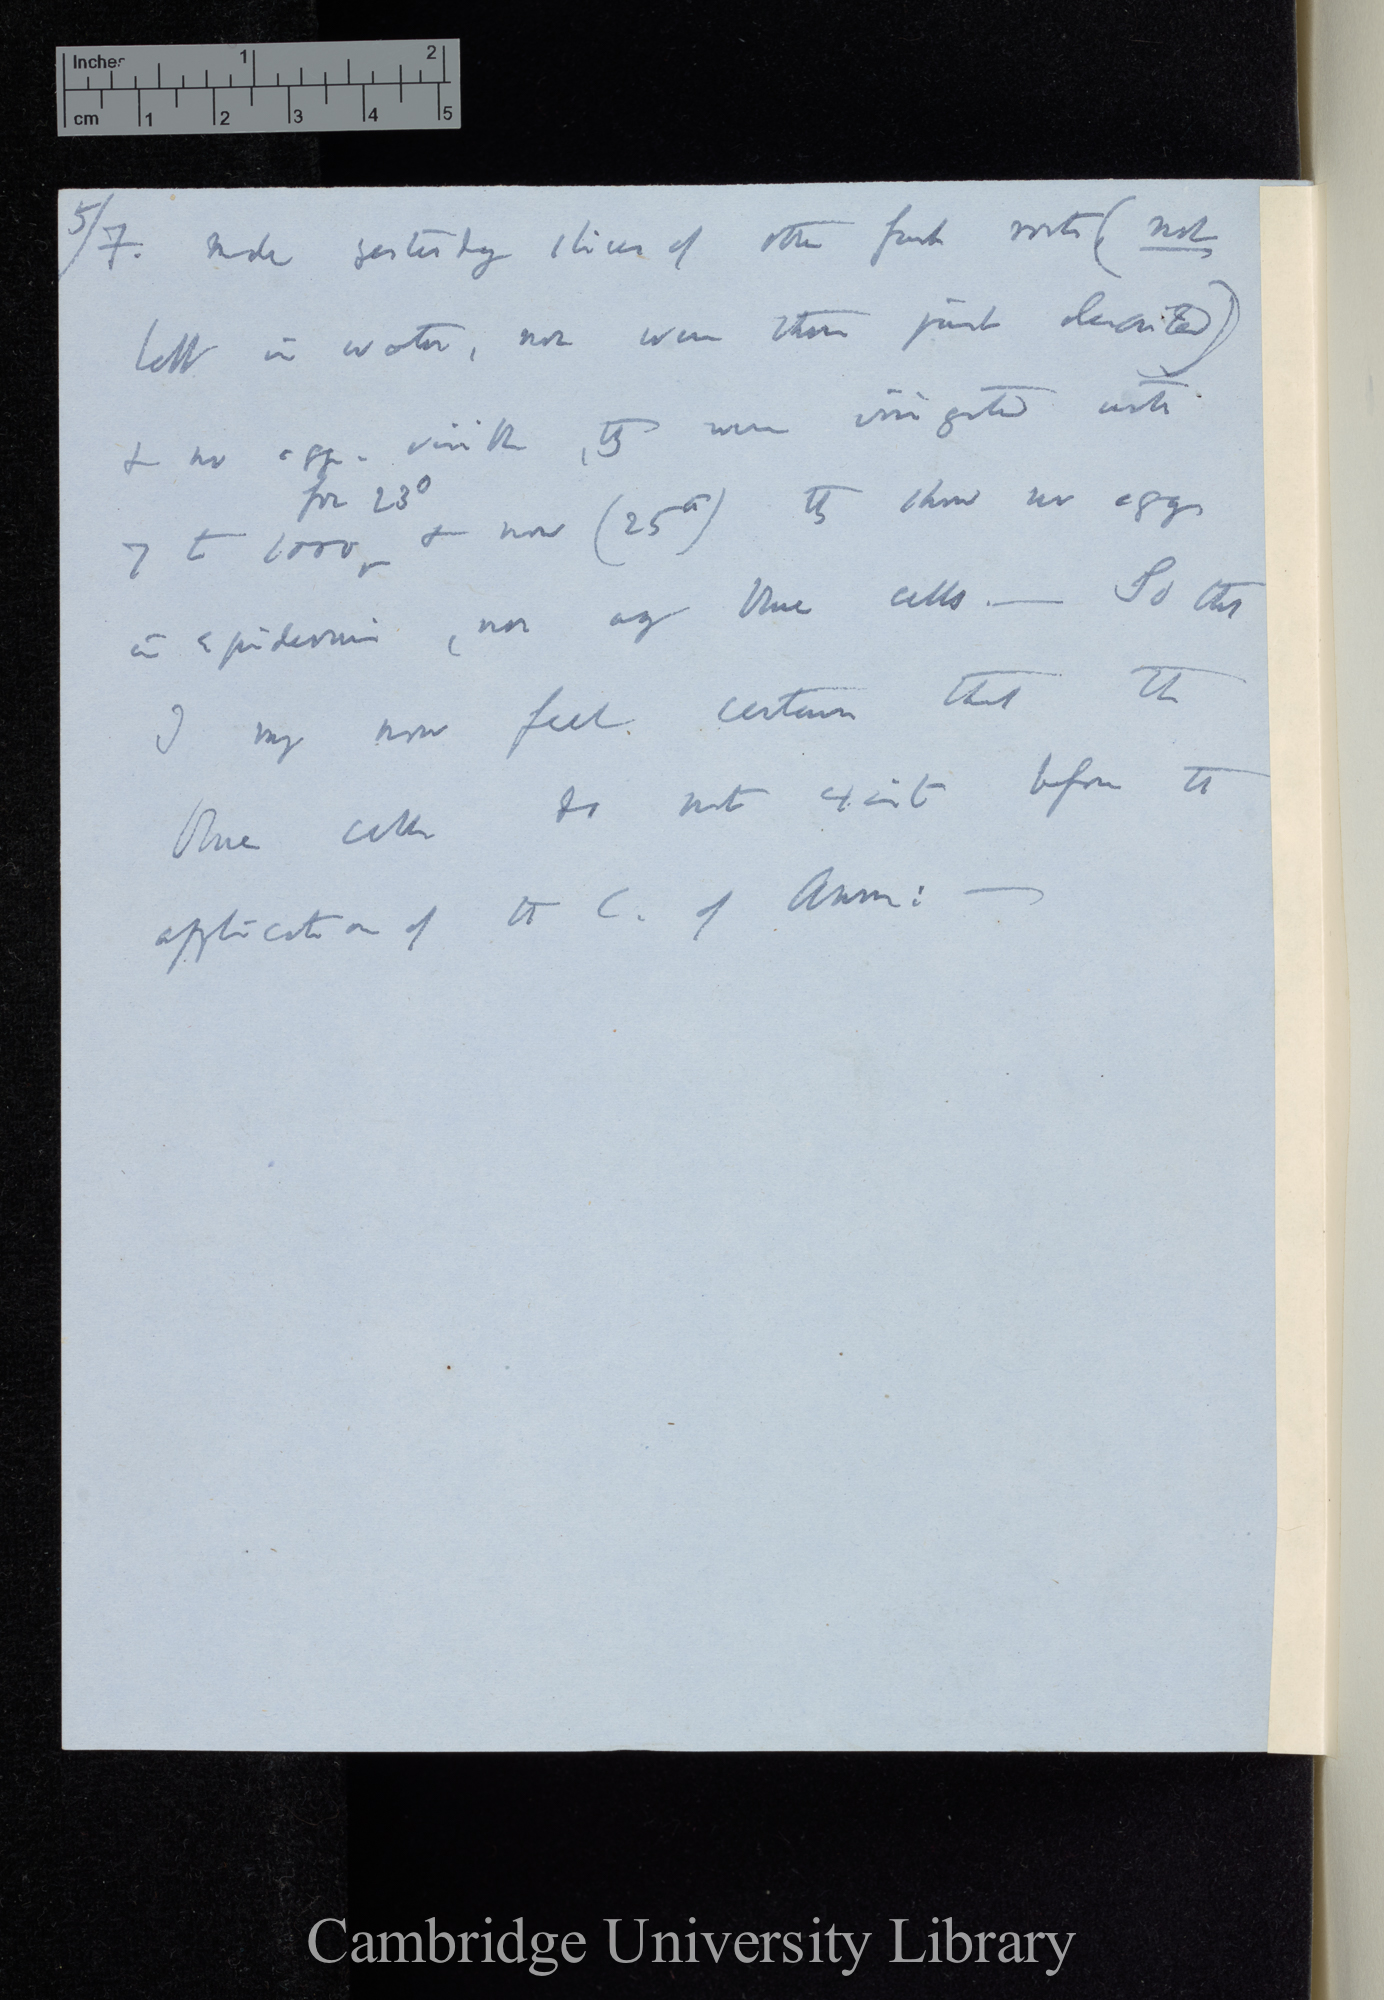 Inches 1 2
cm 1 2 3 4 5
5/7. Made yesterday slices of other fresh roots (not
left in water, nor were those just described)
& no agg. visible, they were irrigated with
for 23°
7 to 1000, & now (25h) they show no agg.
in epidermis, nor any blue cells. — So that
I may now feel certain that the
blue cells do not exist before the
application of the C. of Amm: —
Cambridge University Library